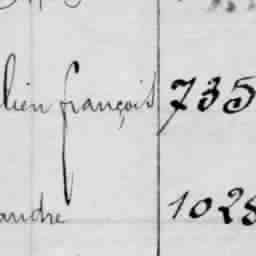 lien françois 735
andre 1028